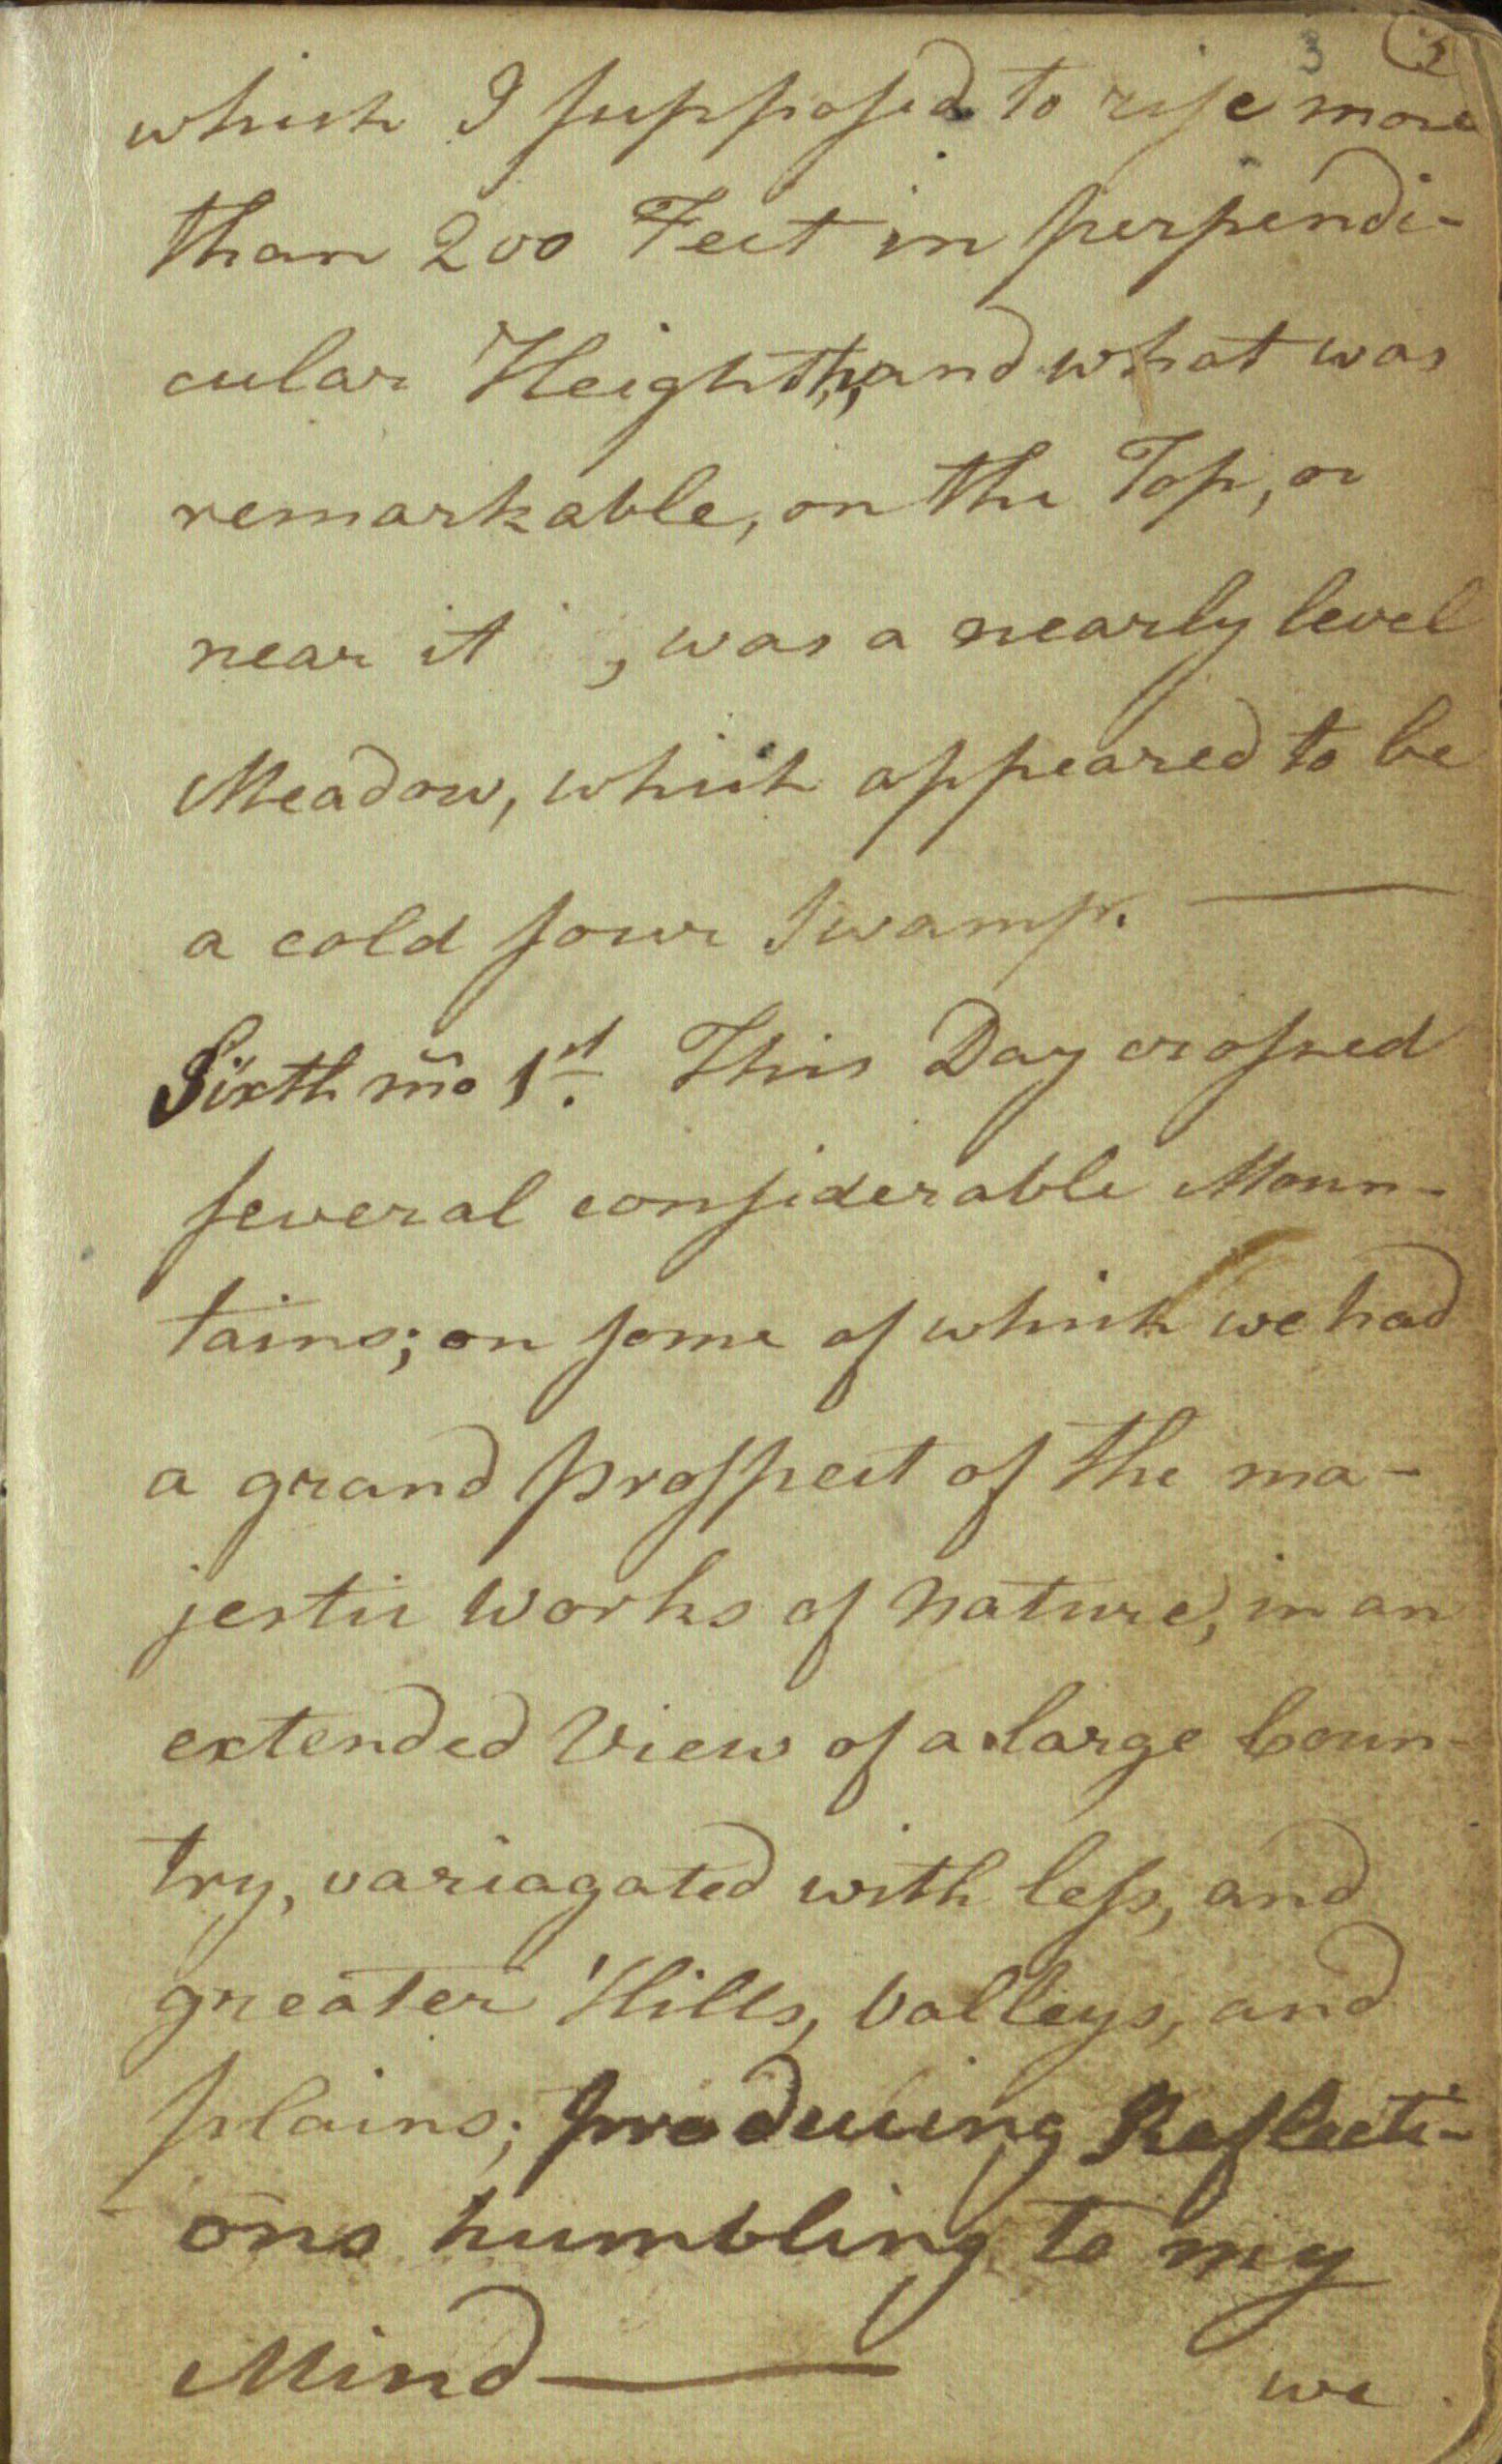 3 2
which I supposed to rise more
than 200 Feet in perpendi-
cular Heighth, and what was
remarkable, on the Top, or
near it , was a nearly level
Meadow, which appeared to be
a cold sour Swamp. —
Sixth mo 1st. This Day crossed
several considerable Moun-
tains; on some of which we had
a grand prospect of the ma-
jestic Works of Nature, in an
extended View of a large Coun-
try, variagated with less, and
greater Hills, Valleys, and
plains; producing Reflecti-
ons humbling to my
Mind —
we